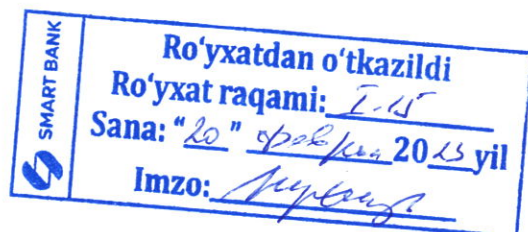 SMART BANK
Ro‘yxatdan o‘tkazildi
Ro‘yxat raqami: I-15
Sana: “20” феврал 20 25 yil
Imzo: